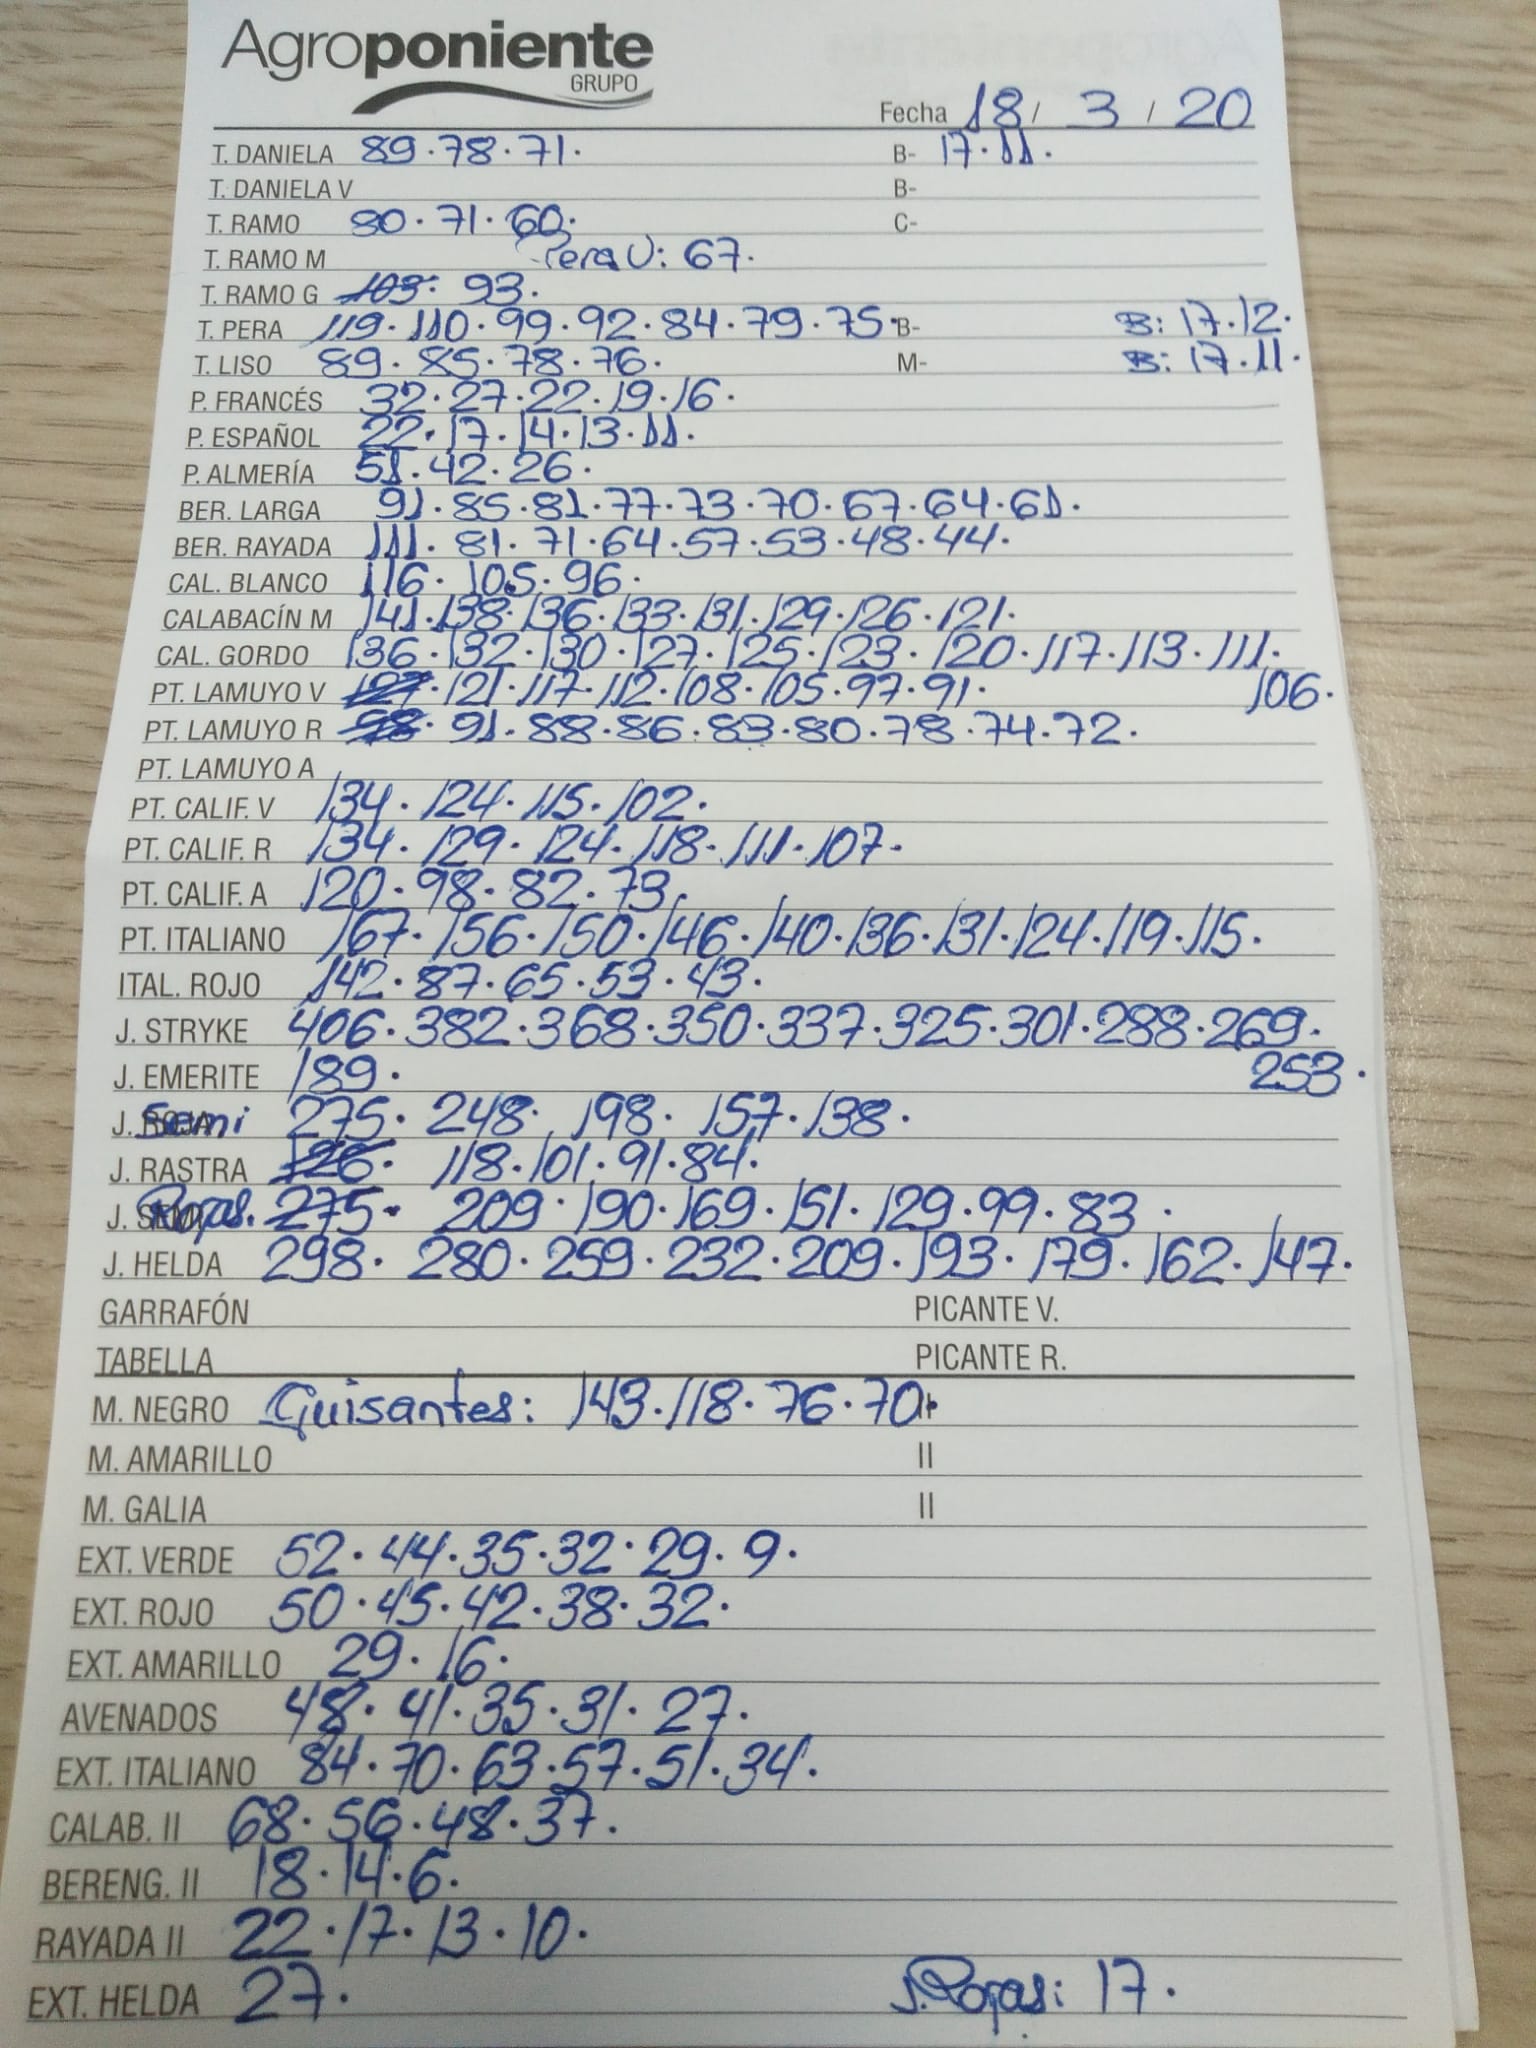 Agroponiente
GRUPO
Fecha 18/ 3 / 20
T. DANIELA 89.78.71. B- 17.11.
T. DANIELA V B-
T. RAMO 80.71.60. C-
T. RAMO M Pera V: 67.
T. RAMO G 103. 93.
T. PERA 119.110.99.92.84.79.75. B- B: 17.12.
T. LISO 89.85.78.76. M- B: 17.11.
P. FRANCÉS 32.27.22.19.16.
P. ESPAÑOL 22.17.14.13.11.
P. ALMERÍA 51.42.26.
BER. LARGA 91.85.81.77.73.70.67.64.61.
BER. RAYADA 111.81.71.64.57.53.48.44.
CAL. BLANCO 116.105.96.
CALABACÍN M 141.138.136.133.131.129.126.121.
CAL. GORDO 136.132.130.127.125.123.120.117.113.111.
106.
PT. LAMUYO V 127.121.117.112.108.105.97.91.
PT. LAMUYO R 98.91.88.86.83.80.78.74.72.
PT. LAMUYO A
PT. CALIF. V 134.124.115.102.
PT. CALIF. R 134.129.124.118.111.107.
PT. CALIF. A 120.98.82.73.
PT. ITALIANO 167.156.150.146.140.136.131.124.119.115.
ITAL. ROJO 142.87.65.53.43.
J. STRYKE 406.382.368.350.337.325.301.288.269.
253.
J. EMERITE 189.
J. Semi 275.248.198.157.138.
J. RASTRA 126. 118.101.91.84.
J. Rojas. 275. 209.190.169.151.129.99.83.
J. HELDA 298.280.259.232.209.193.179.162.147.
GARRAFÓN PICANTE V.
TABELLA PICANTE R.
M. NEGRO Guisantes: 143.118.76.70. II
M. AMARILLO II
M. GALIA II
EXT. VERDE 52.44.35.32.29.9.
EXT. ROJO 50.45.42.38.32.
EXT. AMARILLO 29.16.
AVENADOS 48.41.35.31.27.
EXT. ITALIANO 84.70.63.57.51.34.
CALAB. II 68.56.48.37.
BERENG. II 18.14.6.
RAYADA II 22.17.13.10.
EXT. HELDA 27. J. Rojas: 17.